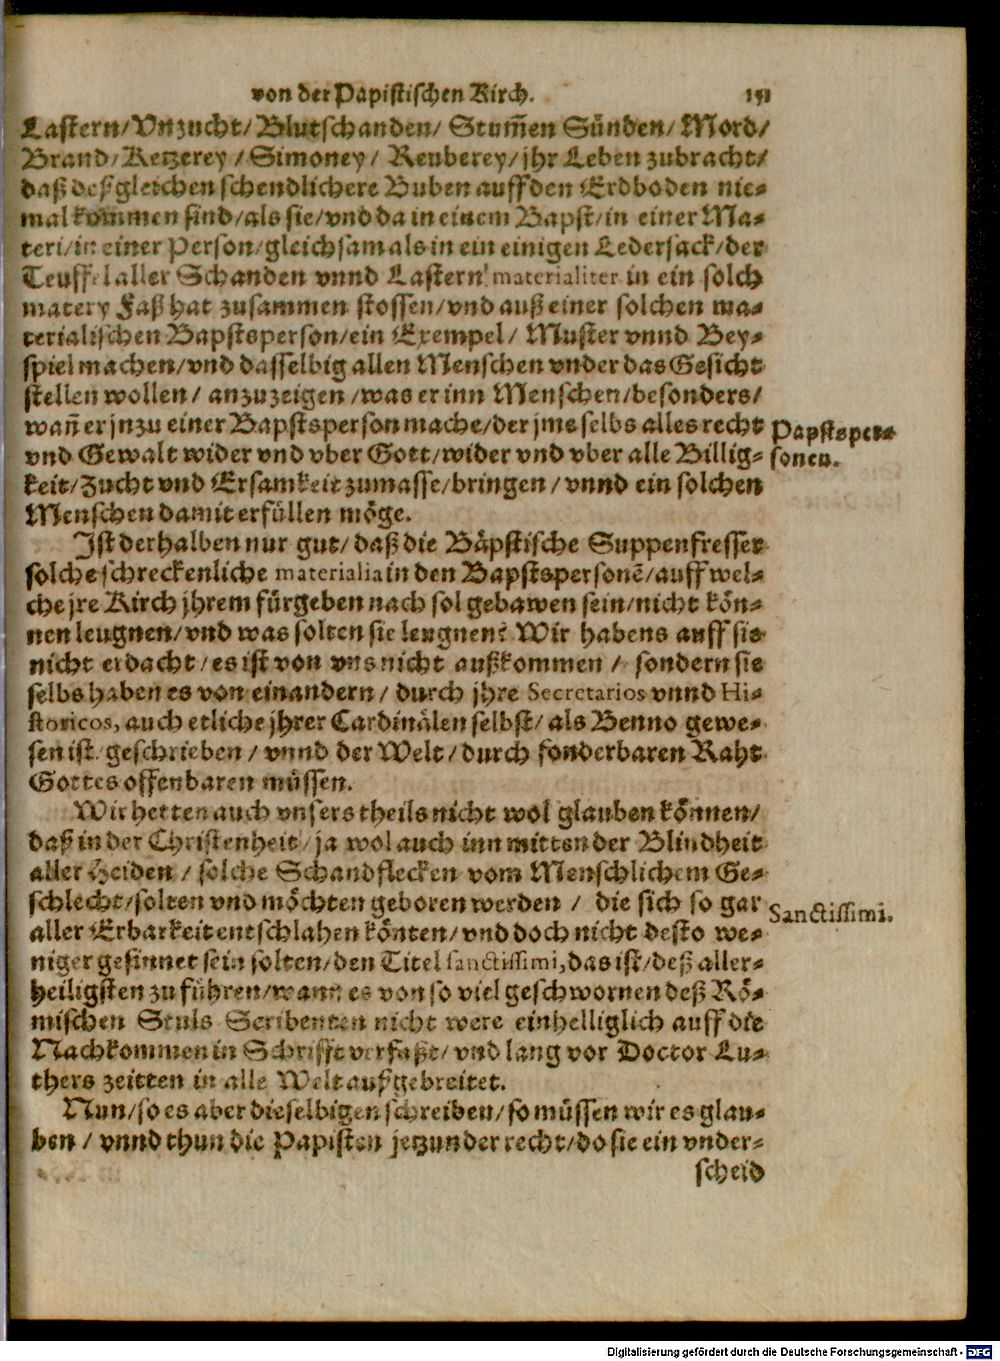 von der Papistischen Kirch. 151
Lastern/Vnzucht/Blutschanden/ Stum̃en Sünden/Mord/
Brand/Ketzerey/Simoney/ Reuberey/jhr Leben zubracht/
daß deßgleichen schendlichere Buben auff den Erdboden nie-
mal kommen sind/als sie/vnd da in einem Bapst/in einer Ma-
teri/in einer Person/gleichsam als in ein einigen Ledersack/der
Teuffel aller Schanden vnnd Lastern materialiter in ein solch
matery Faß hat zusammen stossen/vnd auß einer solchen ma-
terialischen Bapstsperson/ein Exempel/ Muster vnnd Bey-
spiel machen/vnd dasselbig allen Menschen vnder das Gesicht
stellen wollen/ anzuzeigen/was er inn Menschen/besonders/
wañ er jn zu einer Bapstsperson mache/der jme selbs alles recht
Papstsper-
vnd Gewalt wider vnd vber Gott/wider vnd vber alle Billig-
sonen.
keit/Zucht vnd Ersamkeit zumasse/bringen/vnnd ein solchen
Menschen damit erfüllen möge.
Ist derhalben nur gut/daß die Bäpstische Suppenfresser
solche schreckenliche materialia in den Bapstspersonẽ/auff wel-
che jre Kirch jhrem fürgeben nach sol gebawen sein/nicht kön-
nen leugnen/vnd was solten sie leugnen? Wir habens auff sie
nicht erdacht/es ist von vns nicht außkommen/ sondern sie
selbs haben es von einandern/ durch jhre Secretarios vnnd Hi-
storicos, auch etliche jhrer Cardinälen selbst/als Benno gewe-
sen ist/geschrieben/vnnd der Welt/durch sonderbaren Raht
Gottes offenbaren müssen.
Wir hetten auch vnsers theils nicht wol glauben können/
daß in der Christenheit/ja wol auch inn mitten der Blindheit
aller Heiden/ solche Schandflecken vom Menschlichem Ge-
schlecht/solten vnd möchten geboren werden/ die sich so gar
Sanctissimi.
aller Erbarkeit entschlahen könten/vnd doch nicht desto we-
niger gesinnet sein solten/den Titel sanctissimi, das ist/deß aller-
heiligsten zu führen/wann es von so viel geschwornen deß Rö-
mischen Stuls Scribenten nicht were einhelliglich auff die
Nachkommen in Schrifft verfaßt/vnd lang vor Doctor Lu-
thers zeitten in alle Welt außgebreitet.
Nun/so es aber dieselbigen schreiben/so müssen wir es glau-
ben/ vnnd thun die Papisten jetzunder recht/do sie ein vnder-
scheid
Digitalisierung gefördert durch die Deutsche Forschungsgemeinschaft - DFG